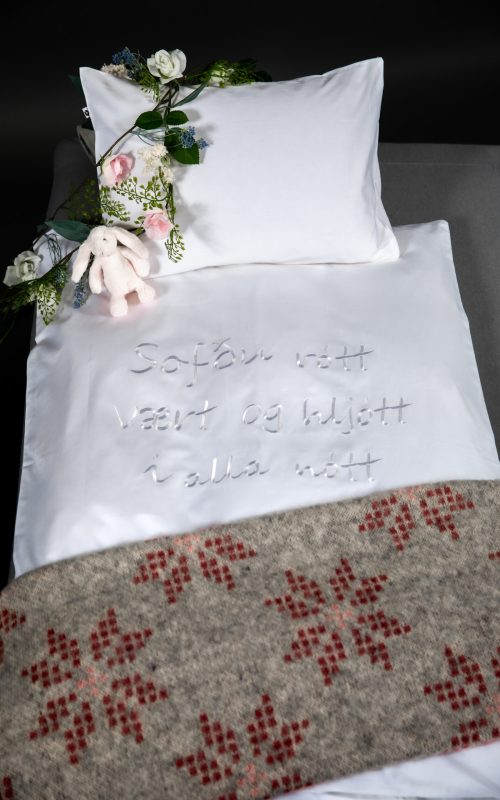 Sofðu rótt
vært og hljótt
í alla nótt